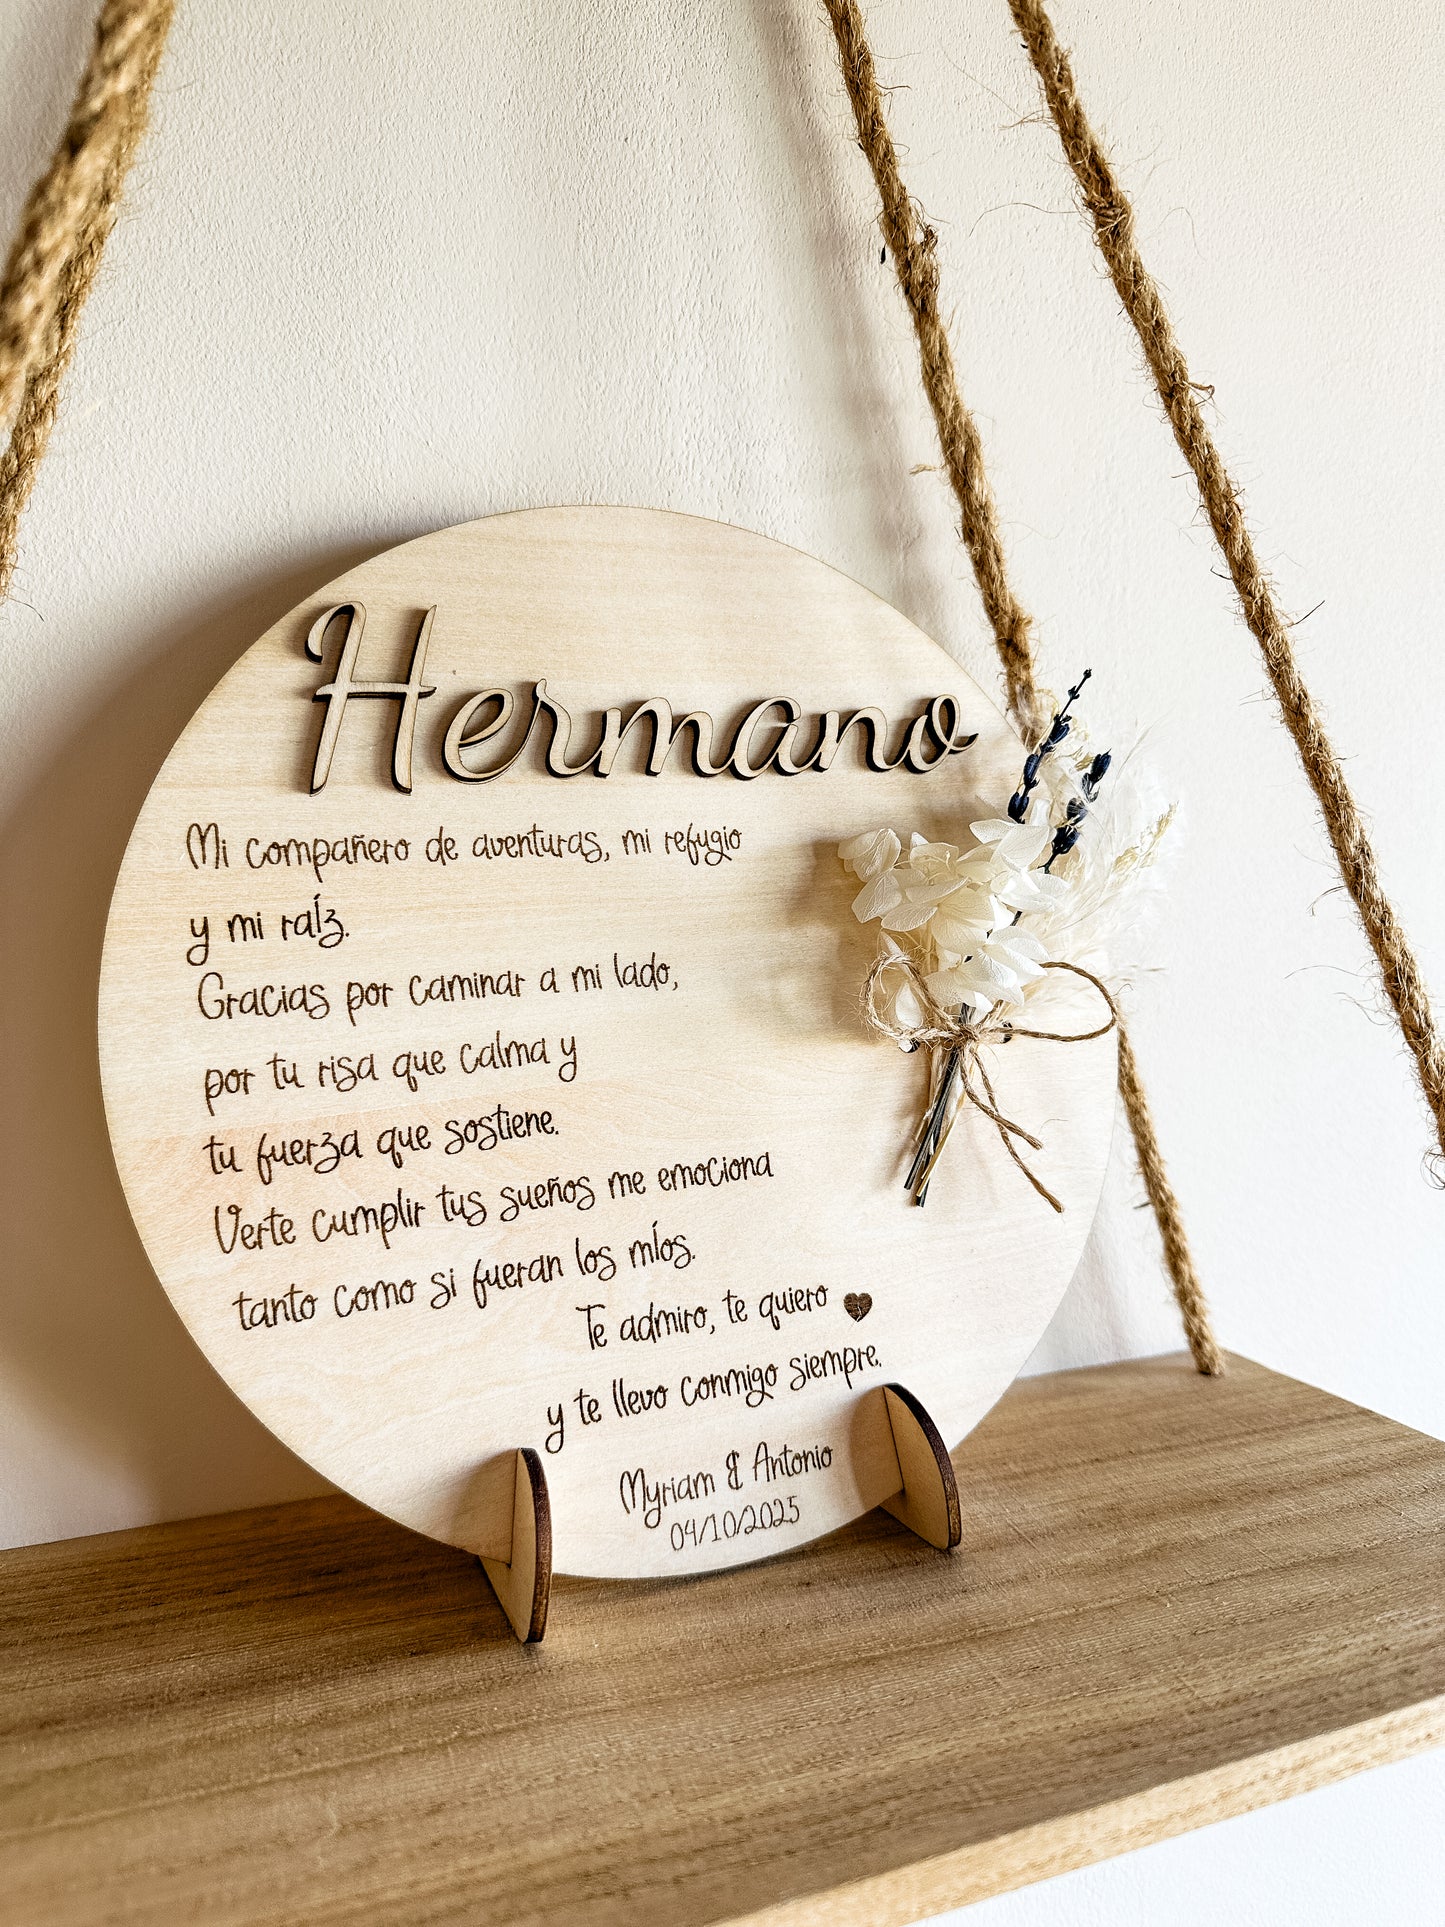 Hermano
Mi compañero de aventuras, mi refugio
y mi raíz.
Gracias por caminar a mi lado,
por tu risa que calma y
tu fuerza que sostiene.
Verte cumplir tus sueños me emociona
tanto como si fueran los míos.
Te admiro, te quiero
y te llevo conmigo siempre.
Myriam & Antonio
04/10/2025